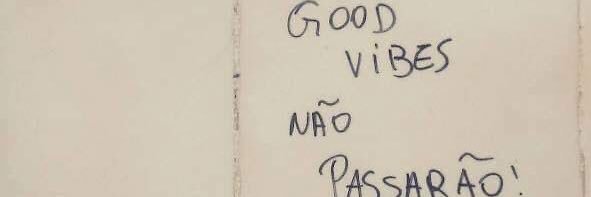 GOOD
ViBES
NÃO
PASSARÃO!